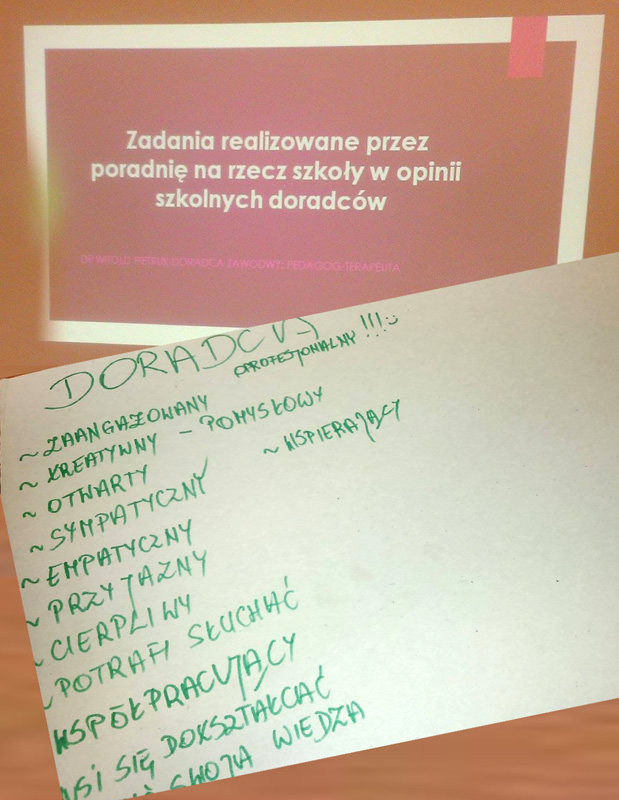 Zadania realizowane przez
poradnię na rzecz szkoły w opinii
szkolnych doradców
DR WITOLD PIETRUK DORADCA ZAWODOWY; PEDAGOG-TERAPEUTA
DORADCY
PROFESJONALNY !!! :)
~ ZAANGAŻOWANY
~ KREATYWNY – POMYSŁOWY
~ OTWARTY ~ WSPIERAJĄCY
~ SYMPATYCZNY
~ EMPATYCZNY
~ PRZYJAZNY
~ CIERPLIWY
~ POTRAFI SŁUCHAĆ
WSPÓŁPRACUJĄCY
SIĘ DOKSZTAŁCAĆ
SWOJĄ WIEDZĄ